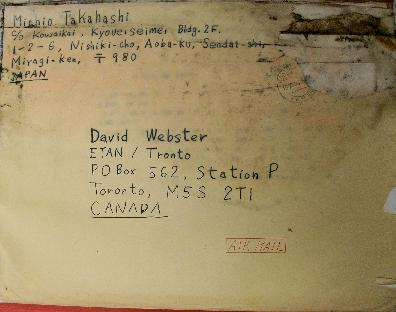 Michio Takahashi
c/o Kowaikai, Kyoueiseimei Bldg. 2F.
1-2-6, Nishiki-cho, Aoba-ku, Sendai-shi,
Miyagi-ken, 〒980
JAPAN
David Webster
ETAN / Tronto
PO Box 562, Station P
Toronto, M5S 2T1
CANADA
AIR MAIL